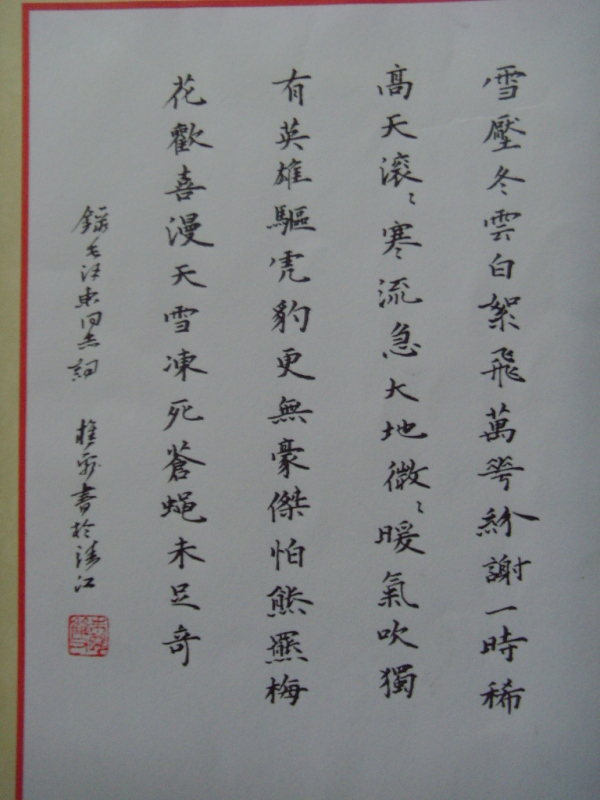 雪壓冬雲白絮飛萬花紛謝一時稀
髙天滾々寒流急大地微々暖氣吹獨
有英雄驅虎豹更無豪傑怕熊羆梅
花歡喜漫天雪凍死蒼蝇未足奇
錄毛泽東同志詞 書於清江